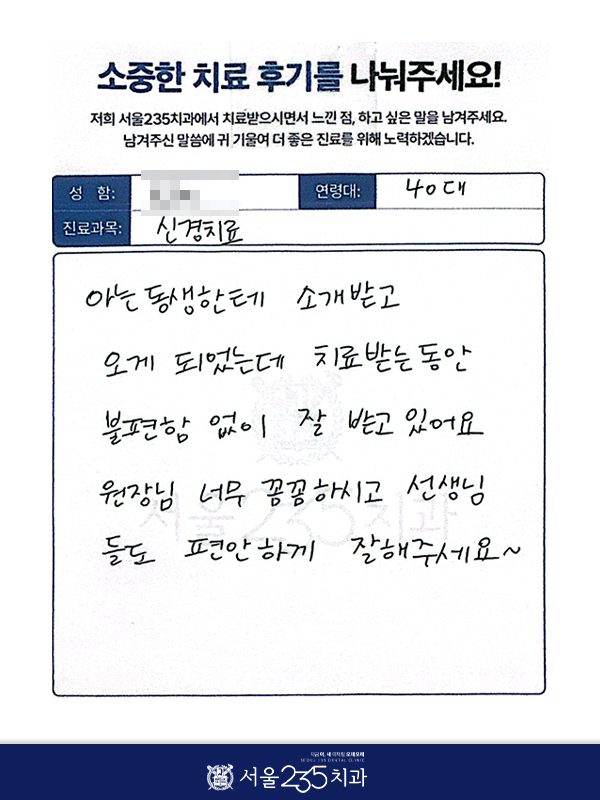 소중한 치료 후기를 나눠주세요!
저희 서울235치과에서 치료받으시면서 느낀 점, 하고 싶은 말을 남겨주세요.
남겨주신 말씀에 귀 기울여 더 좋은 진료를 위해 노력하겠습니다.
성 함: 연령대: 40대
진료과목: 신경치료
아는 동생한테 소개받고
오게 되었는데 치료받는동안
불편함 없이 잘 받고 있어요
원장님 너무 꼼꼼하시고 선생님
들도 편안하게 잘해주세요~
서울235치과
서울235치과